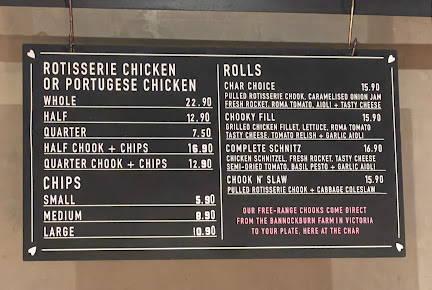 ROTISSERIE CHICKEN
OR PORTUGESE CHICKEN
WHOLE 22.90
HALF 12.90
QUARTER 7.50
HALF CHOOK + CHIPS 16.90
QUARTER CHOOK + CHIPS 12.90
CHIPS
SMALL 5.90
MEDIUM 8.90
LARGE 10.90
ROLLS
CHAR CHOICE 15.90
PULLED ROTISSERIE CHOOK, CARAMELISED ONION JAM
FRESH ROCKET, ROMA TOMATO, AIOLI + TASTY CHEESE
CHOOKY FILL 15.90
GRILLED CHICKEN FILLET, LETTUCE, ROMA TOMATO
TASTY CHEESE, TOMATO RELISH + GARLIC AIOLI
COMPLETE SCHNITZ 16.90
CHICKEN SCHNITZEL, FRESH ROCKET, TASTY CHEESE
SEMI-DRIED TOMATO, BASIL PESTO + GARLIC AIOLI
CHOOK N' SLAW 15.90
PULLED ROTISSERIE CHOOK + CABBAGE COLESLAW
OUR FREE-RANGE CHOOKS COME DIRECT
FROM THE BANNOCKBURN FARM IN VICTORIA
TO YOUR PLATE, HERE AT THE CHAR